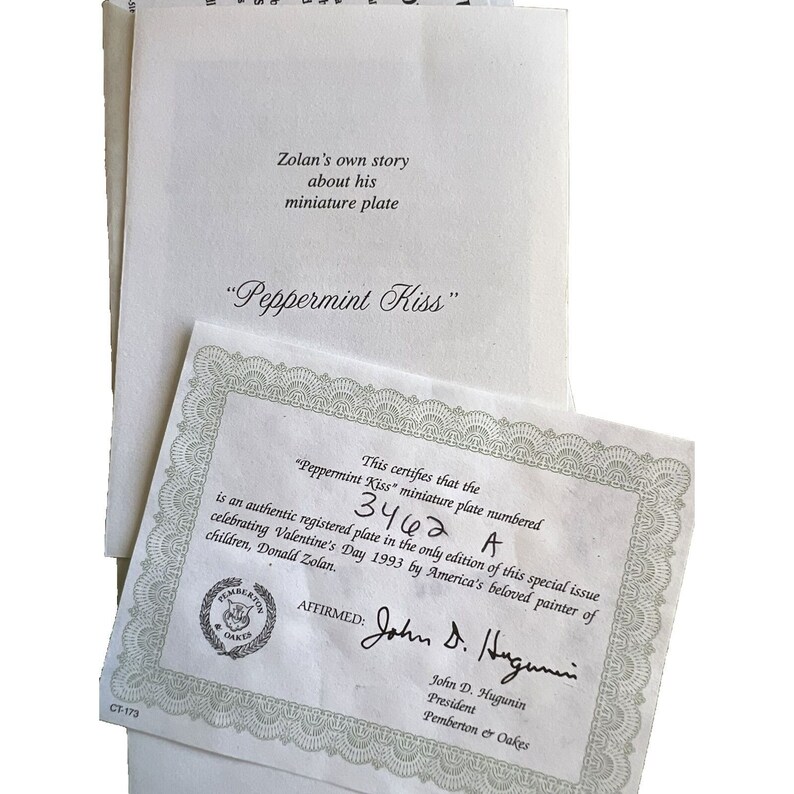 Zolan's own story
about his
miniature plate
"Peppermint Kiss"
This certifies that the
"Peppermint Kiss" miniature plate numbered
3462 A
is an authentic registered plate in the only edition of this special issue
celebrating Valentine's Day 1993 by America's beloved painter of
children, Donald Zolan.
PEMBERTON
& OAKES
AFFIRMED: John D. Hugunin
John D. Hugunin
President
Pemberton & Oakes
CT-173